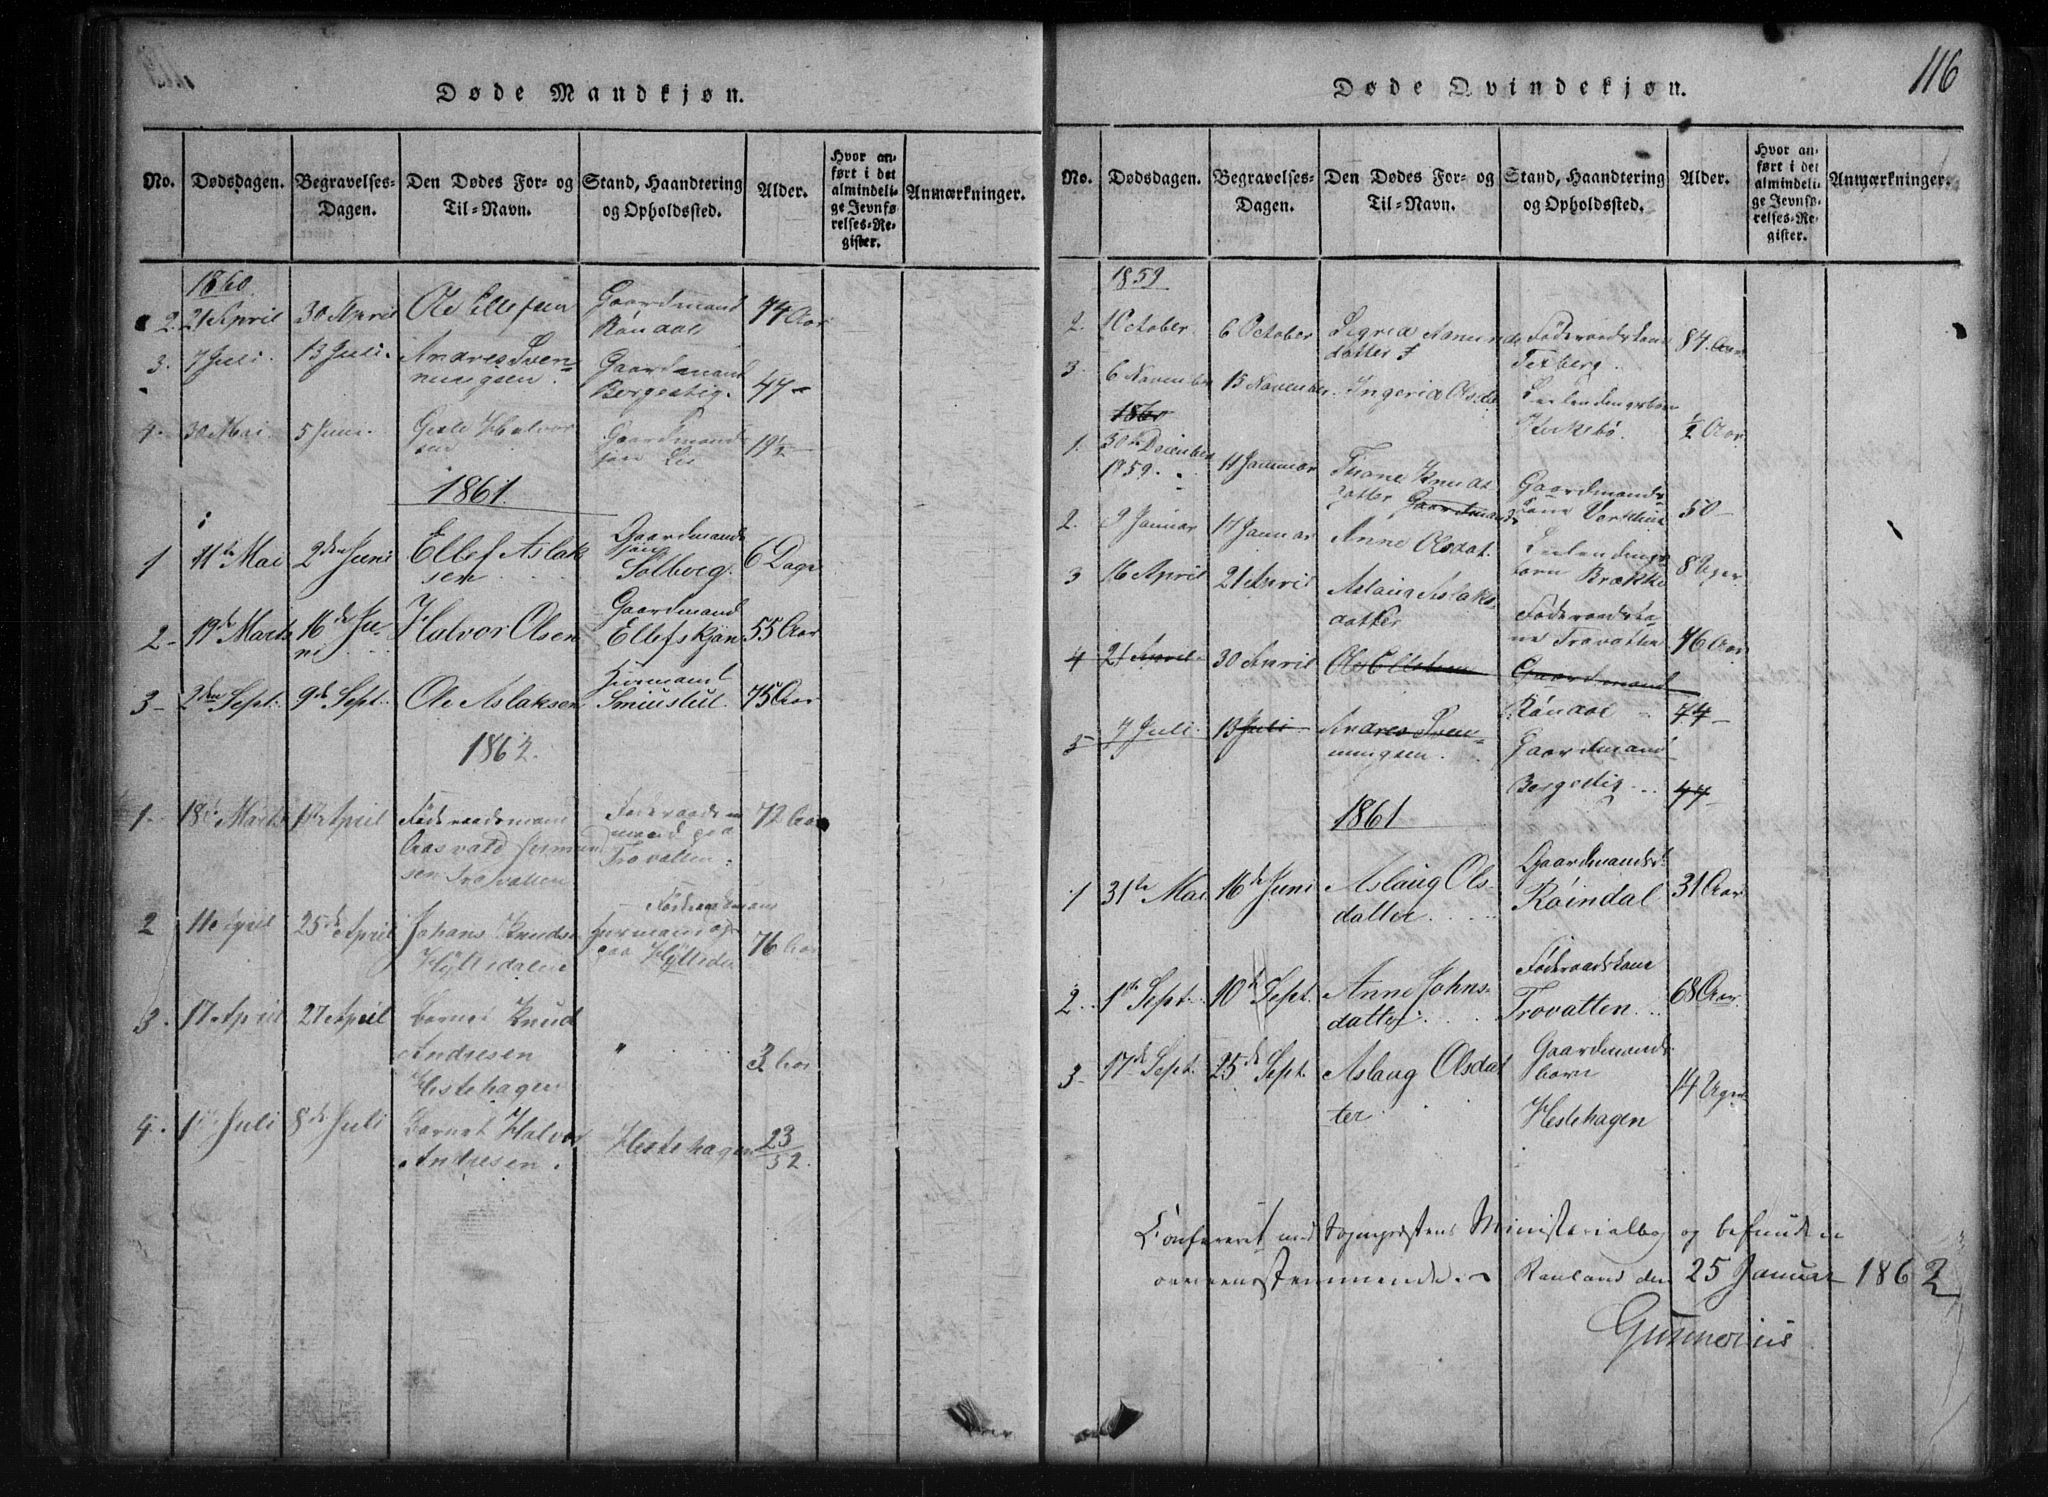 Døde Mandkjøn.
No. Dødsdagen. Begravelses-Dagen. Den Dødes For- og Til-Navn. Stand, Haandtering og Opholdssted. Alder. Hvor anført i det almindelige Jevnførelses-Register. Anmærkninger.
1860.
2. 21 April 30 April Ole Ellefsen Gaardmand 74 Aar
Røndal
3. 7 Juli. 13 Juli. Andres Sven-
nungsen. Gaardmand
Borgestig. 47 -
4. 30 Mai 5 Juni. Halvor
sen Gaardmands
søn Lie
1861.
1 11te Mai 2den Juni Ellef Aslak
sen Gaardmands
søn
Solberg. 6 Dage
2- 19de Marts 16de Ju-
ni Halvor Olsen Gaardmand
Ellefskjøn 55 Aar
3- 2den Sept. 9de Sept. Ole Aslaksen Huusmand
Smiustul 75 Aar
1862.
1- 18de Marts April Føderaadsmand
Aasvald
sen Trovatten Føderaads
mand paa
Trovatten. 72 Aar
2 11 April 25de April Johans Knudsen
Hylledalen Føderaadsmand
paa Hylledal 76 Aar
3. 17 April 27 April Barnet Knud
Andresen
Hestehagen " 3 Aar
4. 1ste Juli 8de Juli Barnet Halvor
Andresen. Hestehagen 23/52.
116
Døde Qvindekjøn.
No. Dødsdagen. Begravelses-Dagen. Den Dødes For- og Til-Navn. Stand, Haandtering og Opholdssted. Alder. Hvor anført i det almindelige Jevnførelses-Register. Anmærkninger.
1859
2. 1 October. 6 October Sigrid Asmunds
datter Føderaadskone
Texberg. 84 Aar
3. 6 November 15 November. Ingerid Olsdt.
Kirkebø. 1/2 Aar
1860
1. 30te December
1859. 11 Januar Knuds
datter Gaardmands Gaardmands
kone 50 -
2. 9 Januar 17 Januar Anne Olsdat.
barn Brække 8 Uger
3 16 April 21 April Aslaug Aslaks
datter Føderaadsko-
ne Trovatten 76 Aar
4 21 April 30 April Ole Ellefsen Gaardmand
Røndal 74 -
5 7 Juli. 13 Juli Andres Sven-
nungsen. Gaardmand
Borgestig 47
1861
1 31te Mai 16de Juni Aslaug Ols-
datter. Gaardmandsk.
Røindal 31 Aar
2. 1ste Sept. 10de Sept. Anne Johns-
datter. Føderaadskone
Trovatten. 68 Aar.
3- 17de Sept. 25de Sept. Aslaug Olsdat
ter Gaardmands
barn
Hestehagen 14 Uger
Confereret med Sogneprestens Ministerialbog og befunden
overensstemmende. - Rauland den 25 Januar 1862
Gunnerius